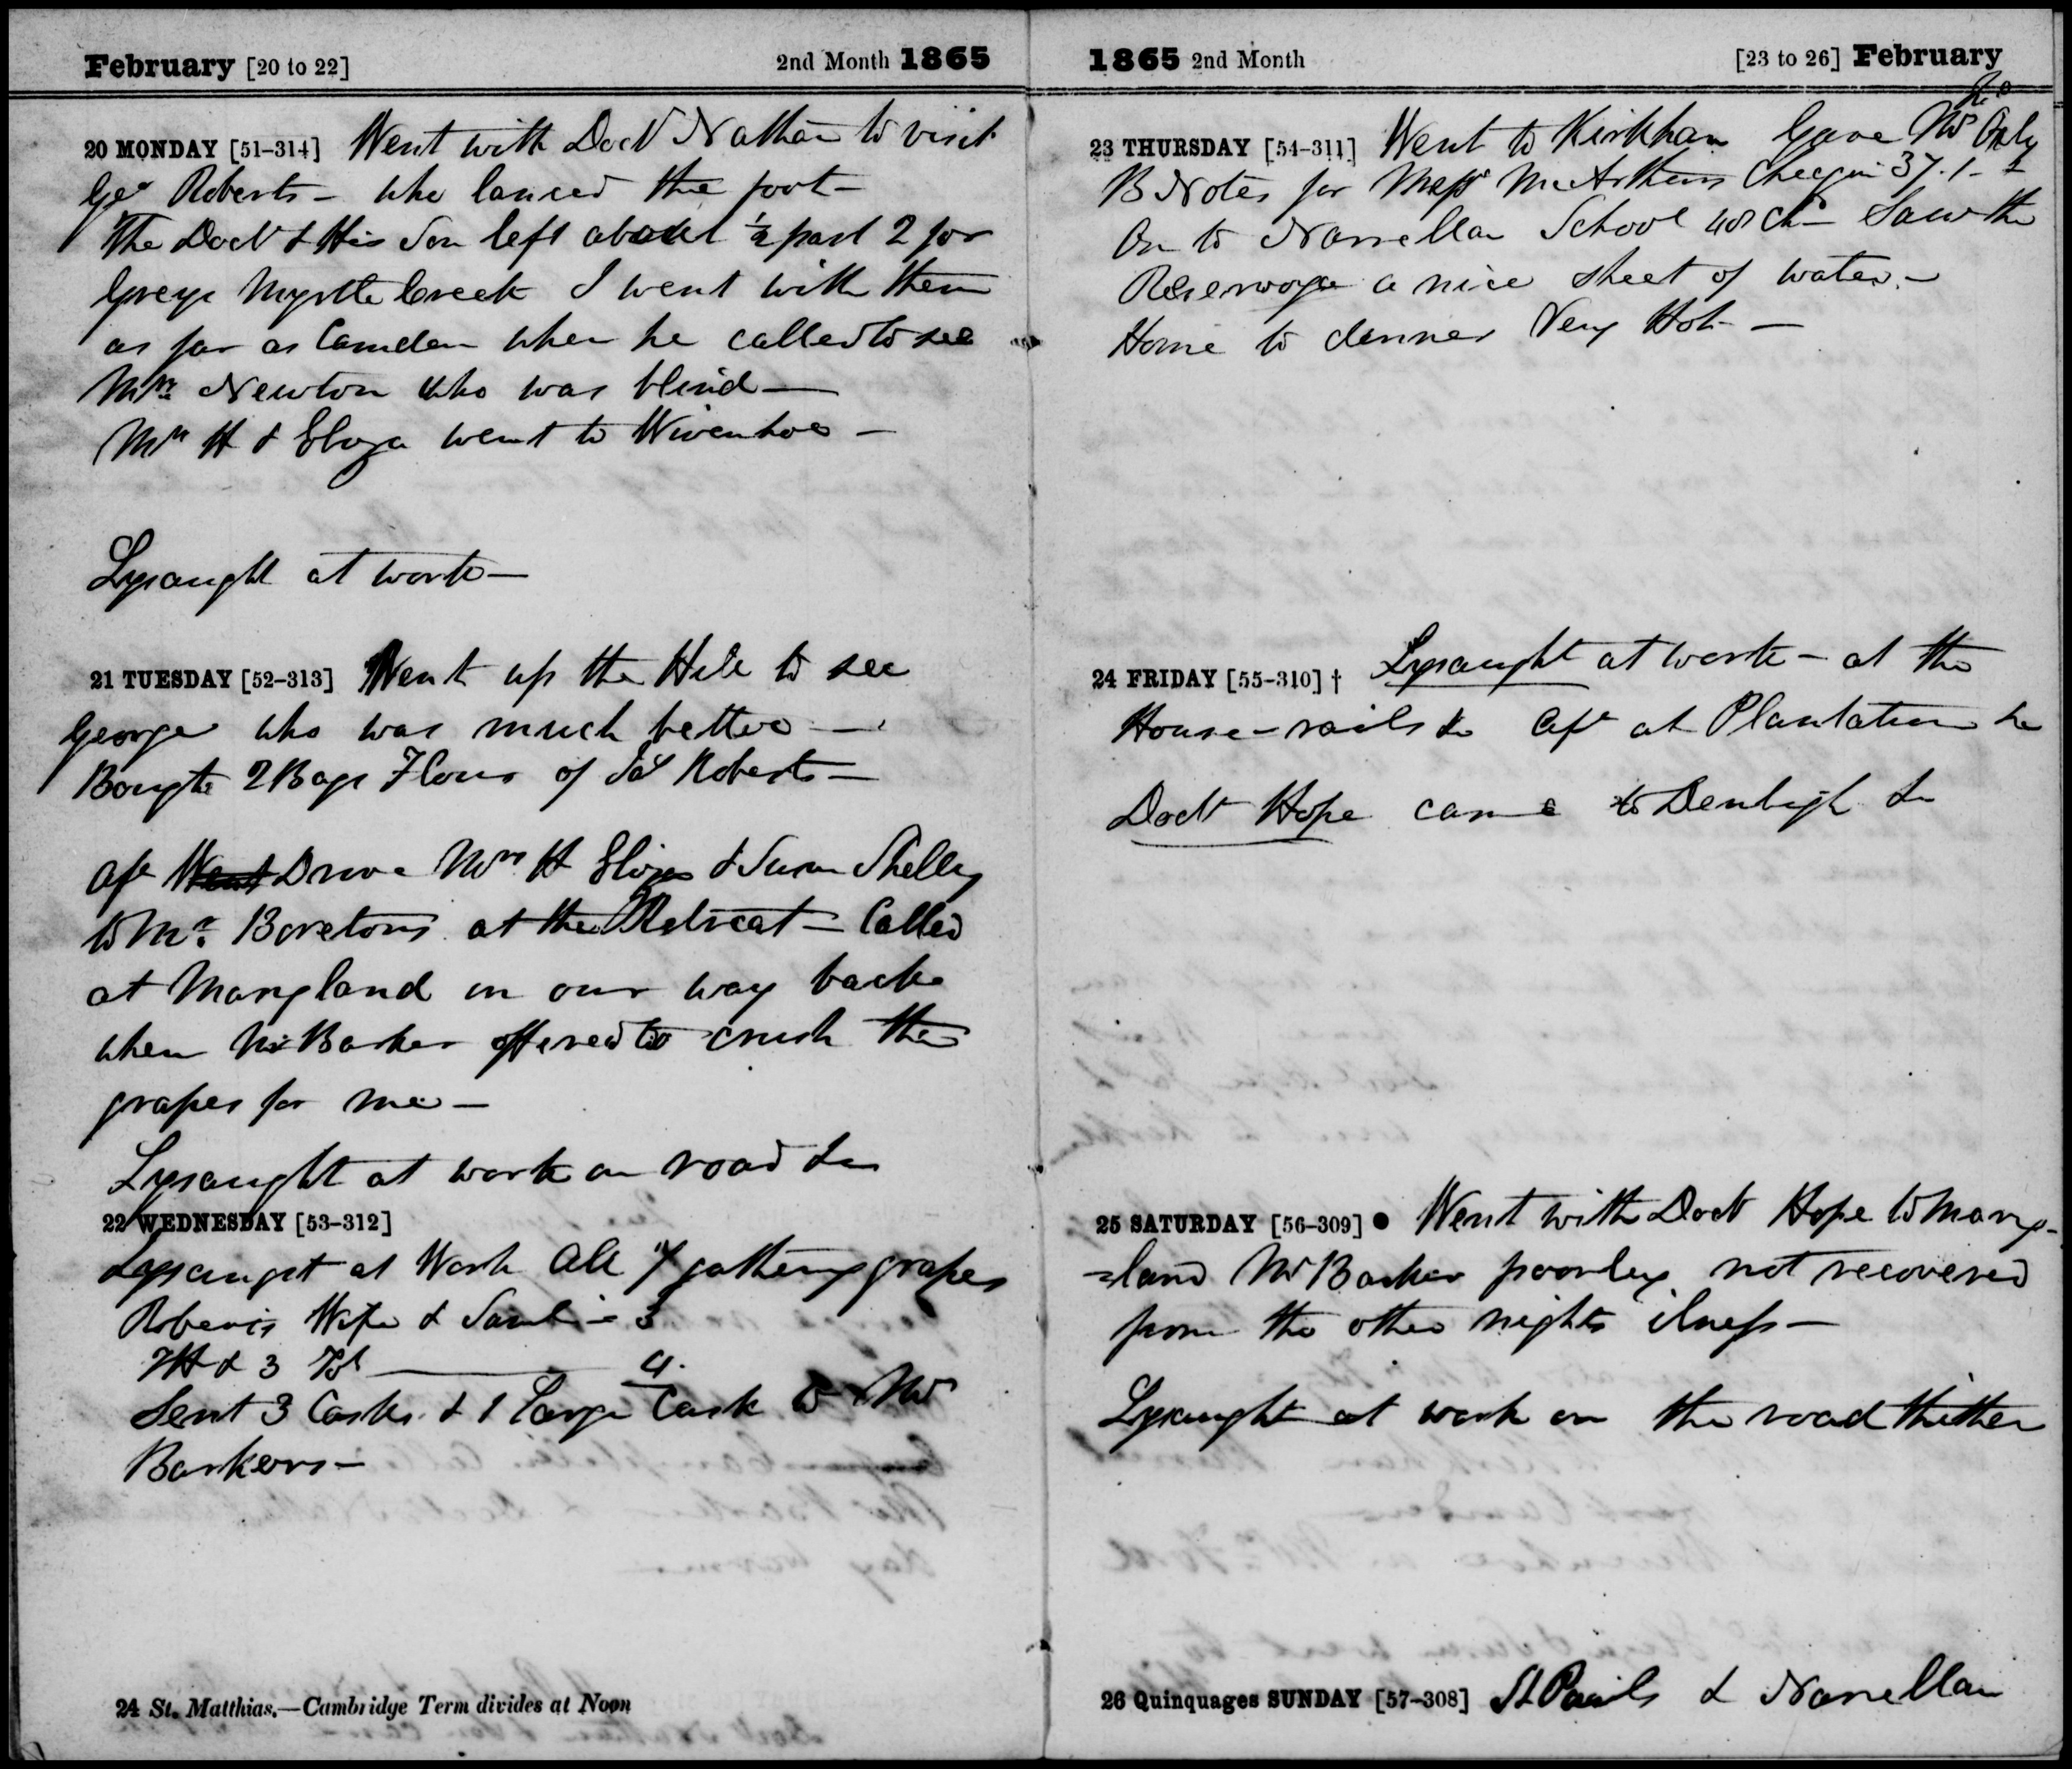 February [20 to 22] 2nd Month 1865
20 MONDAY [51-314] Went with Doctr Nathan to visit
Geo Roberts - who lanced the foot -
The Doctr & His Son left about ½ past 2 for
Greys Myrtle Creek I went with them
as far as Camden when he called to see
Mrs Newton who was blind -
Mrs H & Eliza went to Wivenhoe -
Lysaught at work -
21 TUESDAY [52-313] Went up the Hill to see
George who was much better -
Bought 2 Bags Flour of Jas Roberts -
Aft Went Drove Mrs H Eliza & Susan Shelley
to Mrs. at the Retreat - Called
at Maryland on our way back
when Mr Barker offered to crush the
grapes for me -
Lysaught at work on road &c
22 WEDNESDAY [53-312]
Lysaught at Work All gathering grapes
Roberts Wife & - 3
& 3 4.
Sent 3 Casks & 1 Large Cask to Mr
Barkers -
24 St. Matthias.—Cambridge Term divides at Noon
1865 2nd Month [23 to 26] February
23 THURSDAY [54-311] Went to Kirkham Gave Mr
B Notes for Messrs McArthurs Cheque 37.1-
On to Narellan School Saw the
a nice sheet of water. -
Home to dinner Very Hot -
24 FRIDAY [55-310] † Lysaught at work - at the
House - rails &c Aft at Plantation &c
Doctr Hope came to Denbigh &c
25 SATURDAY [56-309] ● Went with Doctr Hope to Mary-
=land Mr Barker poorley not recovered
from the other nights ilness -
Lysaught at work on the road thither
26 Quinquages SUNDAY [57-308] St Pauls & Narellan